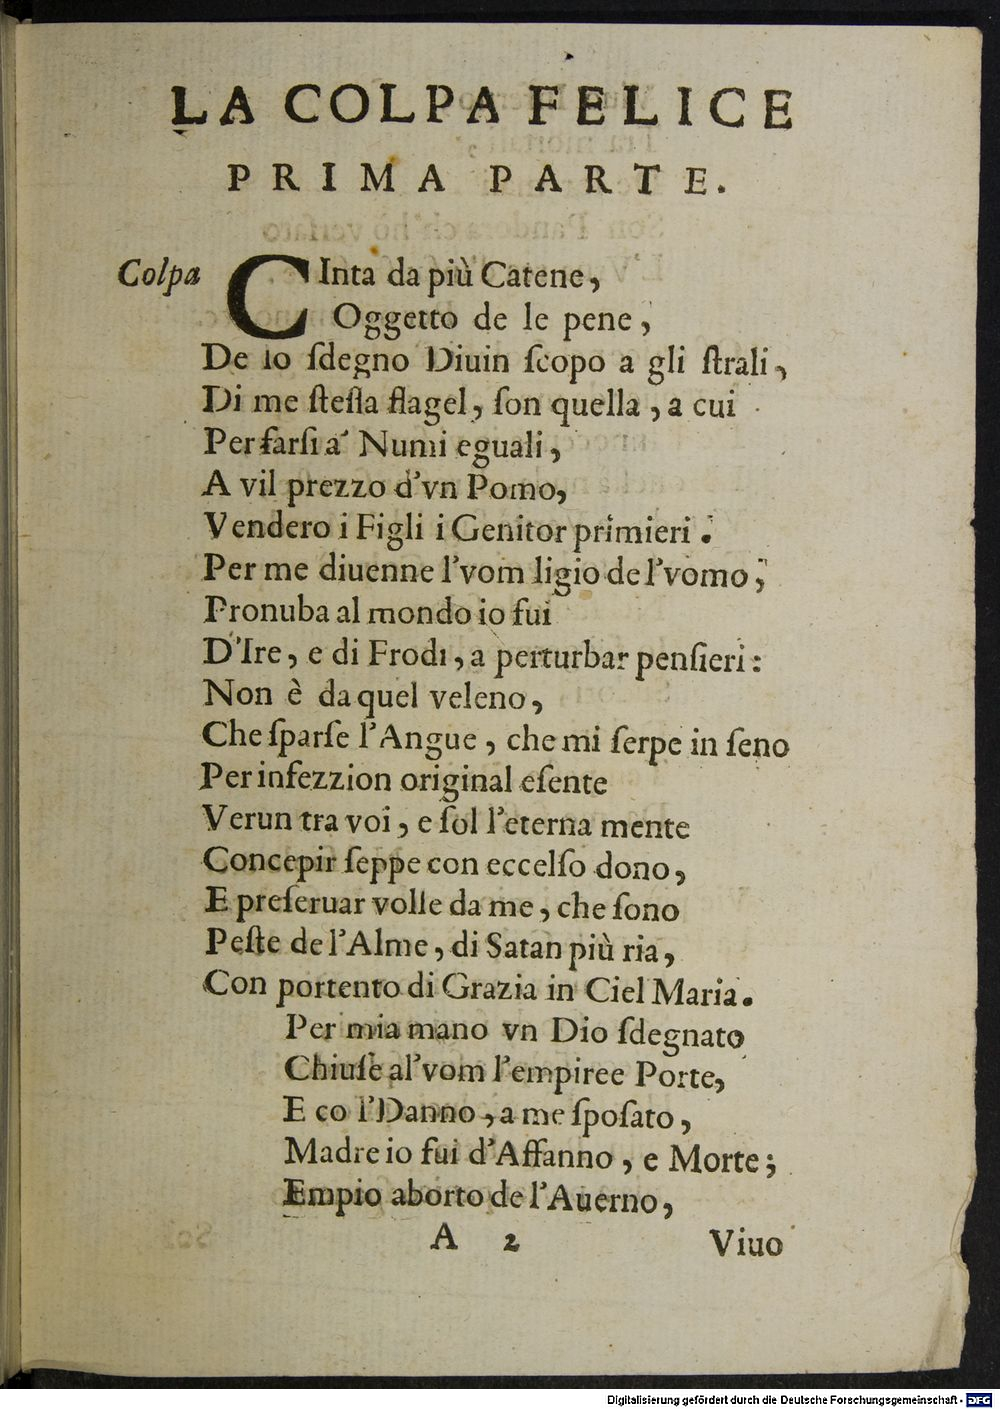 LA COLPA FELICE
PRIMA PARTE.
Colpa CInta da più Catene,
Oggetto de le pene,
De lo ſdegno Diuin ſcopo a gli ſtrali,
Di me ſteſſa flagel, ſon quella, a cui
Per farſi a' Numi eguali,
A vil prezzo d'vn Pomo,
Vendero i Figli i Genitor primieri.
Per me diuenne l'vom ligio de l'vomo;
Pronuba al mondo io fui
D'Ire, e di Frodi, a perturbar penſieri:
Non è da quel veleno,
Che ſparſe l'Angue, che mi ſerpe in ſeno
Per infezzion original eſente
Verun tra voi, e ſol l'eterna mente
Concepir ſeppe con eccelſo dono,
E preſeruar volle da me, che ſono
Peſte de l'Alme, di Satan più ria,
Con portento di Grazia in Ciel Maria.
Per mia mano vn Dio ſdegnato
Chiuſe al'vom l'empiree Porte,
E co l'Danno, a me ſpoſato,
Madre io fui d'Affanno, e Morte;
Empio aborto de l'Auerno,
A 2 Viuo
Digitalisierung gefördert durch die Deutsche Forschungsgemeinschaft - DFG